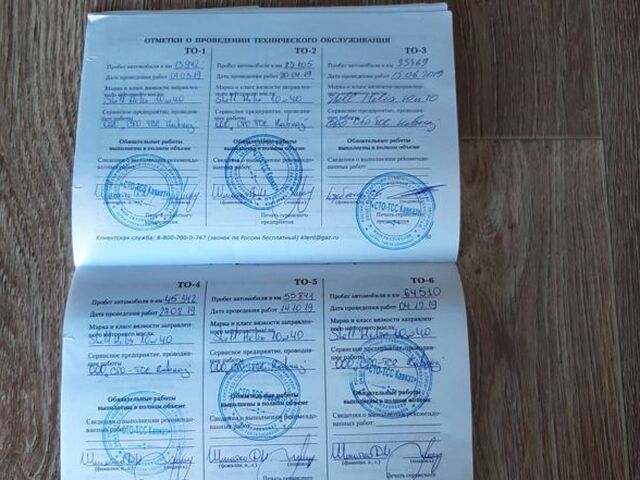 ОТМЕТКИ О ПРОВЕДЕНИИ ТЕХНИЧЕСКОГО ОБСЛУЖИВАНИЯ
ТО-1
Пробег автомобиля в км 13942
Дата проведения работ 04.03.19
Марка и класс вязкости заправлен-
ного моторного масла
Shell Helix 10w40
Сервисное предприятие, проводив-
шее работы
ООО "СТО-ТСС Кавказ"
Обязательные работы
выполнены в полном объеме
Сведения о выполнении рекомендо-
ванных работ
СТО-ТСС Кавказ
Печать сервисного
предприятия
ТО-2
Пробег автомобиля в км 23105
Дата проведения работ 20.04.19
Марка и класс вязкости заправлен-
ного моторного масла
Shell Helix 10w40
Сервисное предприятие, проводив-
шее работы
ООО "СТО-ТСС Кавказ"
Обязательные работы
выполнены в полном объеме
Сведения о выполнении рекомендо-
ванных работ
Печать сервисного
предприятия
ТО-3
Пробег автомобиля в км 33369
Дата проведения работ 15.06.2019
Марка и класс вязкости заправлен-
ного моторного масла
Shell Helix
Сервисное предприятие, проводив-
шее работы
ООО СТО ТСС Кавказ
Обязательные работы
выполнены в полном объеме
Сведения о выполнении рекомендо-
ванных работ
«СТО-ТСС Кавказ»
Печать сервисного
предприятия
Клиентская служба: 8-800-700-0-747 (звонок по России бесплатный) klient@gaz.ru
ТО-4
Пробег автомобиля в км 45342
Дата проведения работ 27.08.19
Марка и класс вязкости заправлен-
ного моторного масла
Shell Helix 10w40
Сервисное предприятие, проводив-
шее работы
ООО "СТО-ТСС Кавказ"
Обязательные работы
выполнены в полном объеме
Сведения о выполнении рекомендо-
ванных работ
«СТО-ТСС Кавказ»
(фамилия, и., о.) (подпись)
ТО-5
Пробег автомобиля в км 55841
Дата проведения работ 14.10.19
Марка и класс вязкости заправлен-
ного моторного масла
Shell Helix 10w40
Сервисное предприятие, проводив-
шее работы
ООО "СТО-ТСС Кавказ"
Обязательные работы
выполнены в полном объеме
«СТО-ТСС Кавказ»
Сведения о выполнении рекомендо-
ванных работ
(фамилия, и., о.) (подпись)
Печать сервисного
ТО-6
Пробег автомобиля в км 64510
Дата проведения работ 04.12.19
Марка и класс вязкости заправлен-
ного моторного масла
Shell Helix 10w40
Сервисное предприятие, проводив-
шее работы
ООО "СТО-ТСС Кавказ"
«СТО-ТСС Кавказ»
Обязательные работы
выполнены в полном объеме
Сведения о выполнении рекомендо-
ванных работ
(фамилия, и., о.) (подпись)
Печать сервисного